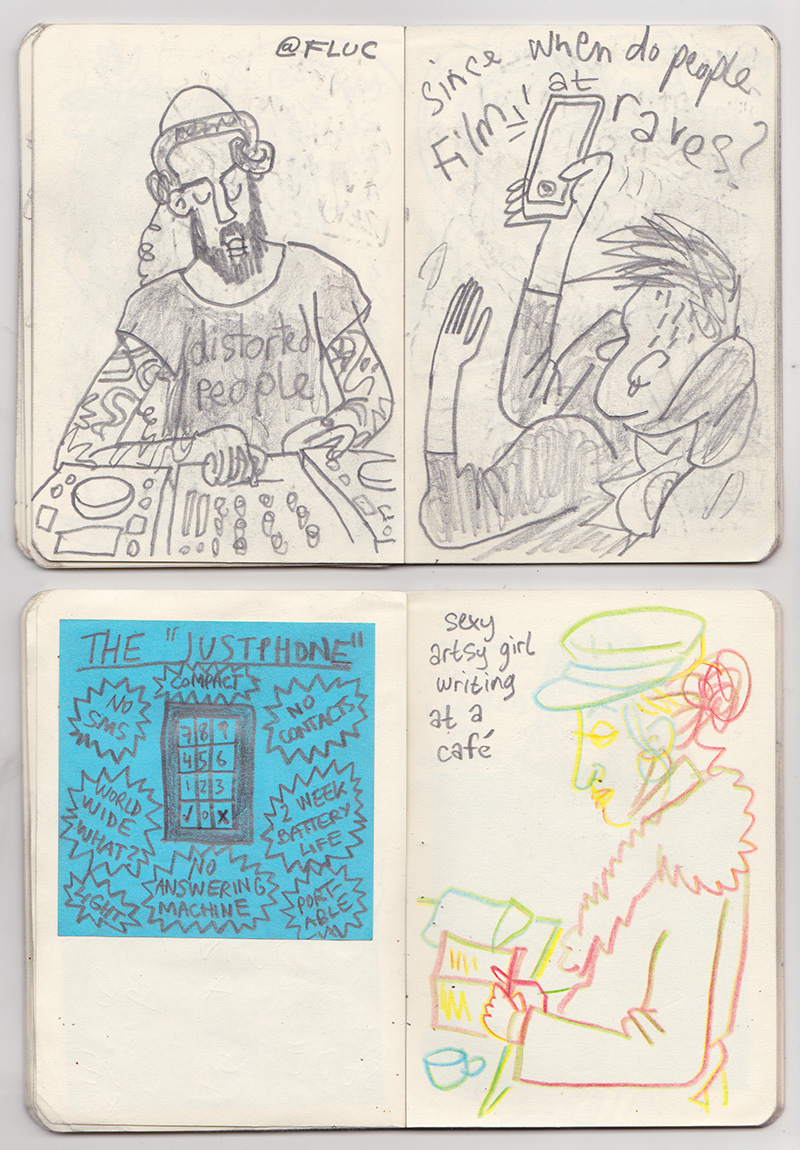 @FLUC
distorted
people
since when do people
film at raves?
THE "JUSTPHONE"
COMPACT
NO
SMS
NO
CONTACTS
7 8 9
4 5 6
1 2 3
✓ 0 X
WORLD
WIDE
WHAT?
2 WEEK
BATTERY
LIFE
LIGHT
NO
ANSWERING
MACHINE
PORT-
ABLE
sexy
artsy girl
writing
at a
café